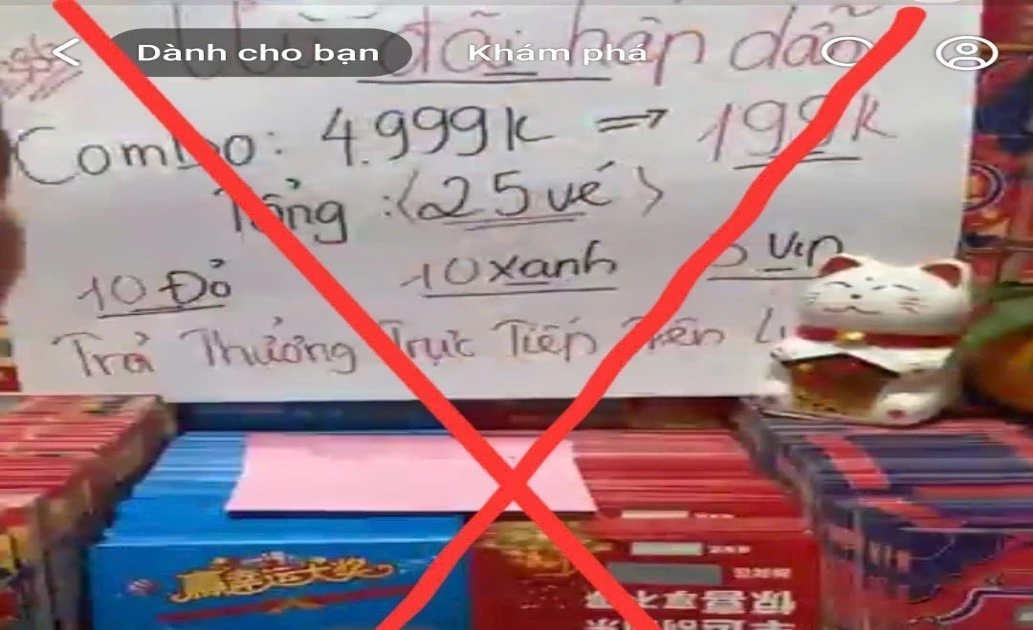 Dành cho bạn Khám phá
Ưu đãi hấp dẫn
Combo: 4.999k => 199k
Tổng :<25 vé>
10 Đỏ 10 xanh Vip
Trả Thưởng Trực Tiếp Trên
赢幸运大奖